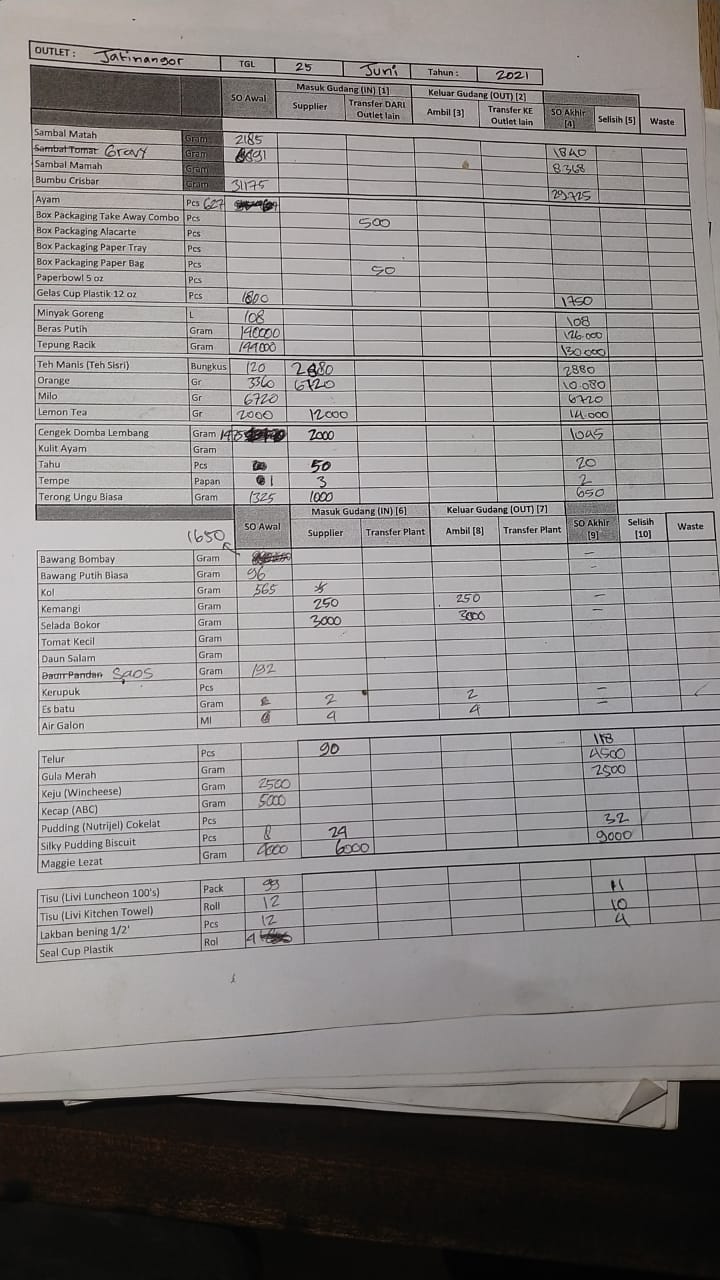 OUTLET : Jatinangor TGL 25 Juni Tahun : 2021
SO Awal Masuk Gudang (IN) [1] Keluar Gudang (OUT) [2] SO Akhir [4] Selisih [5] Waste
Supplier Transfer DARI Outlet lain Ambil [3] Transfer KE Outlet lain
Sambal Matah Gram 2185 1840
Sambal Tomat Gravy Gram 8368
Sambal Mamah Gram
Bumbu Crisbar Gram 31175 29725
Ayam Pcs 627
Box Packaging Take Away Combo Pcs 500
Box Packaging Alacarte Pcs
Box Packaging Paper Tray Pcs
Box Packaging Paper Bag Pcs 50
Paperbowl 5 oz Pcs
Gelas Cup Plastik 12 oz Pcs 1800 1750
Minyak Goreng L 108 108
Beras Putih Gram 190000 126.000
Tepung Racik Gram 144000 130000
Teh Manis (Teh Sisri) Bungkus 120 2880 2880
Orange Gr 3360 6720 10.080
Milo Gr 6720 6720
Lemon Tea Gr 2000 12000 14.000
Cengek Domba Lembang Gram 2000 1045
Kulit Ayam Gram
Tahu Pcs 50 20
Tempe Papan 1 3 2
Terong Ungu Biasa Gram 1325 1000 650
SO Awal Masuk Gudang (IN) [6] Keluar Gudang (OUT) [7] SO Akhir [9] Selisih [10] Waste
Supplier Transfer Plant Ambil [8] Transfer Plant
1650
Bawang Bombay Gram –
Bawang Putih Biasa Gram 96 -
Kol Gram 565
Kemangi Gram 250 250 –
Selada Bokor Gram 3000 3000 –
Tomat Kecil Gram
Daun Salam Gram
Daun Pandan Saos Gram 192
Kerupuk Pcs
Es batu Gram 2 2 –
Air Galon Ml 4 4 –
Telur Pcs 90 118
Gula Merah Gram 4500
Keju (Wincheese) Gram 2500 2500
Kecap (ABC) Gram 5000
Pudding (Nutrijel) Cokelat Pcs
Silky Pudding Biscuit Pcs 8 24 32
Maggie Lezat Gram 4000 6000 9000
Tisu (Livi Luncheon 100's) Pack 99
Tisu (Livi Kitchen Towel) Roll 12 11
Lakban bening 1/2' Pcs 12 10
Seal Cup Plastik Rol 4 4